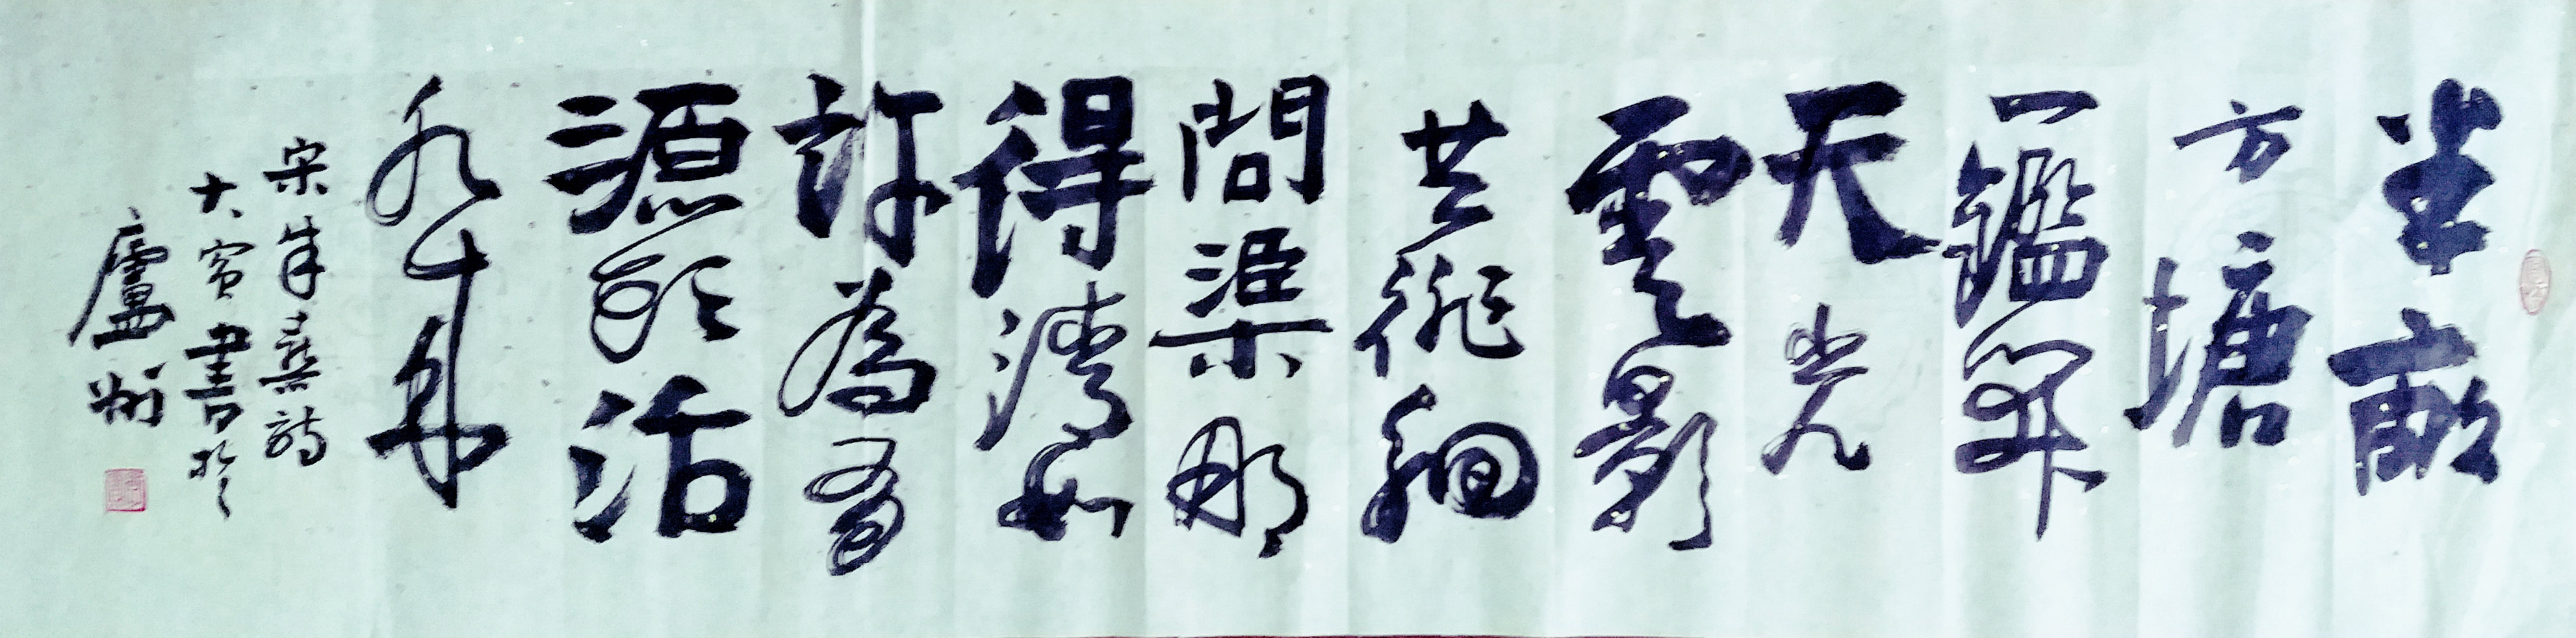 半畝
方塘
一鑑開
天光
雲影
共徘徊
問渠那
得清如
許為有
源頭活
水來
宋朱熹詩
大賓書於
盧州